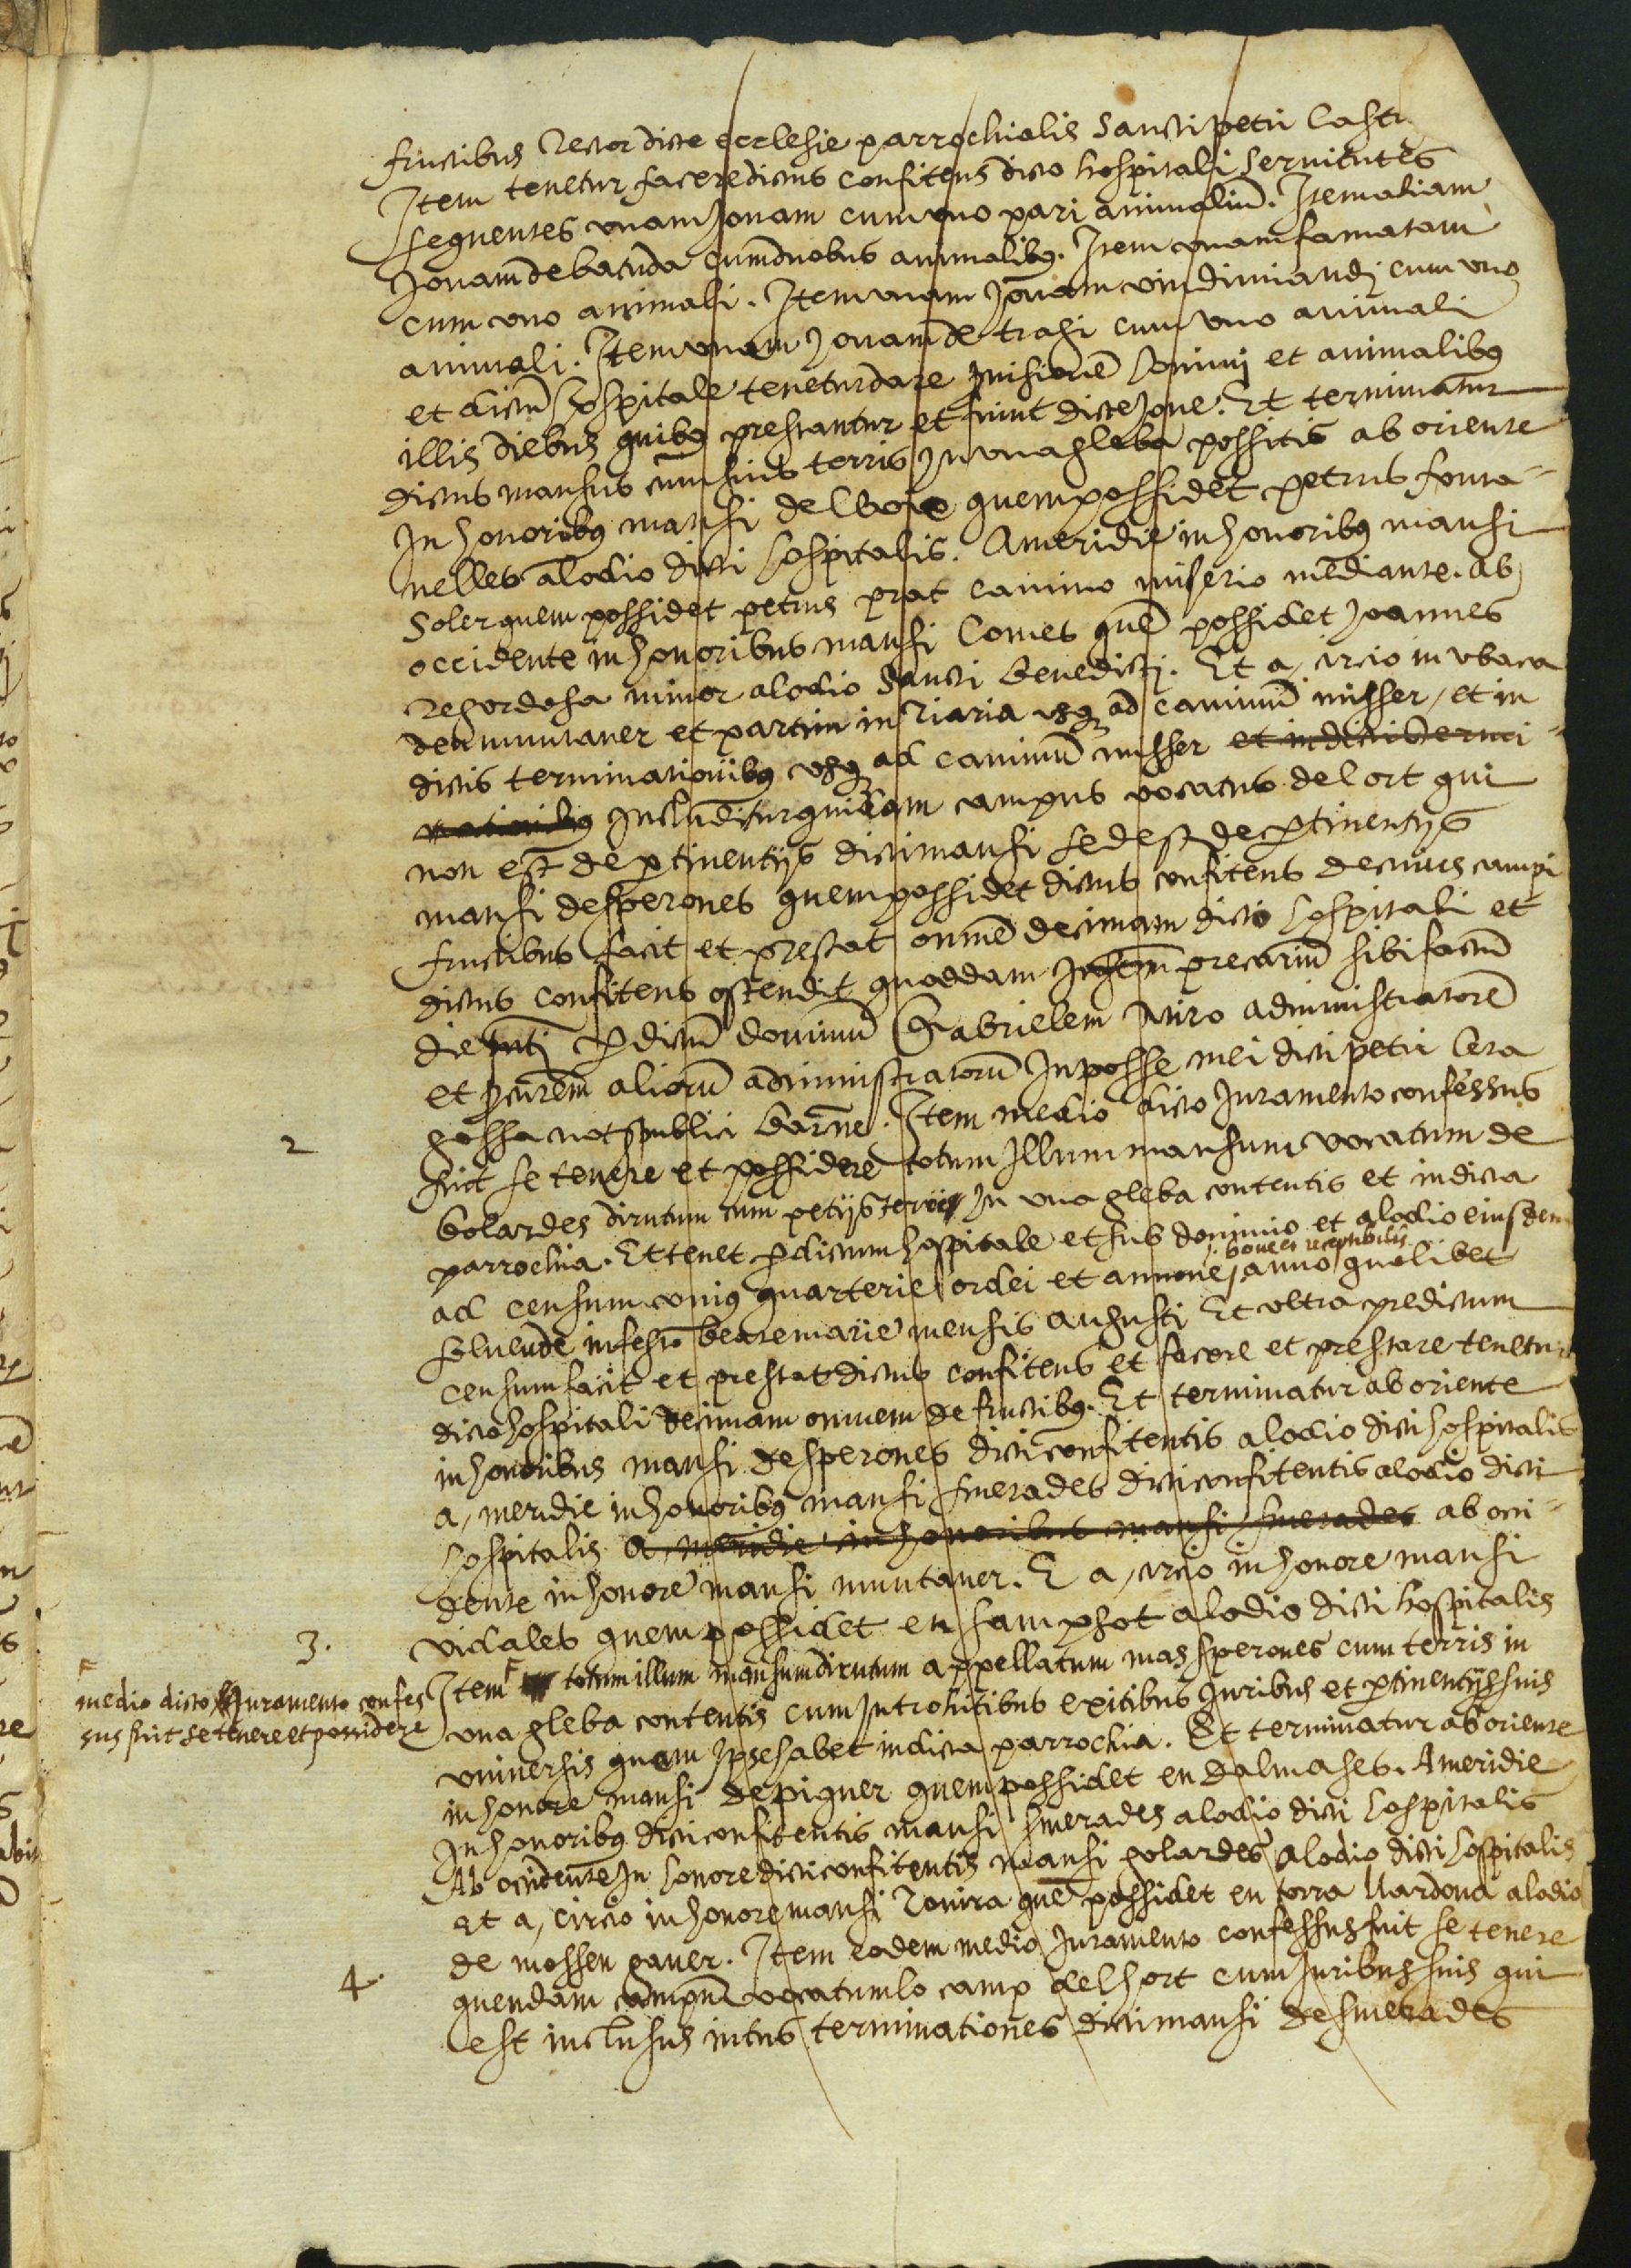 fructibus Rector dicte ecclesie parrochialis Sancti petri Castr
Item tenetur facere dictus confitens dicto hospitali servitutes
sequentes unam Jonam cum uno pari animaliu. Item aliam
Jonam de batuda cum duobus animalibus. Item unam femataru
cum uno animali. Item unam Jonam vindimiandi cum uno
animali. Item unam Jonam de tragi cum uno animali
et dictu hospitale tenetur dare homini et animalibus
illis diebus quibus prestantur et fiunt dicte Jone. Et terminatur
dictus mansus cum suis terris In una gleba possitis ab oriente
In honoribus mansi del quem possidet petrus fonta-
nelles alodio dicti hospitalis. A meridie in honoribus mansi
Soler quem possidet petrus prat camino miserio mediante. ab
occidente in honoribus mansi Comes que possidet Joannes
Regordosa minor alodio Sancti Benedicti. Et a, circio in ubaca
den muntaner et partim in Riaria usq ad caminu misser, et in
dictis terminationibus usq ad caminu misser et in dictis termi-
nationibus Includitur quidam campus vocatus del ort qui
non est de ptinentijs dicti mansi sed est de ptinentijs
mansi desperones quem possidet dictus confitens de cuius campi
fructibus facit et prestat omne decimam dicto hospitali et
dictus confitens ostendit quoddam precariu sibi factu
die p dictu dominu Gabrielem Miro administratore
et alioru administratoru In posse mei dicti petri Cera
gossa not publici barne. Item medio dicto Juramento confessus
2 fuit se tenere et possidere totum Illum mansum vocatum de
bolardes dirutum cum petijs terre In una gleba contentis et in dicta
parrochia. Et tenet p dictum hospitale et sub dominio et alodio eiusdem
ad censum unius quarterie ordei et annone boni et receptibilis anno quolibet
solvende in festo beate marie mensis Augusti Et ultra predictum
censum facit et prestat dictus confitens et facere et prestare tenetur
dicto hospitali decimam omnem de fructibus. Et terminatur ab oriente
in honoribus mansi desperones dicti confitentis alodio dicti hospitalis
a, meridie in honoribus mansi smerades dicti confitentis alodio dicti
hospitalis a, meridie in honoribus mansi smerades ab occi-
dente in honore mansi muntaner. E a, circio in honore mansi
3. vidales quem possidet en sampsot alodio dicti hospitalis
Item totum illum mansum dirutum appellatum mas sperones cum terris in
medio dicto Juramento confes
sus fuit se tenere et possidere
una gleba contentis cum Introhitibus exitibus Juribus et ptinentijs suis
universis quam Ipse habet in dicta parrochia. Et terminatur ab oriente
in honore mansi de piguer quem possidet en dalmases. A meridie
In honoribus dicti confitentis mansi smerades alodio dicti hospitalis
Ab occidente In honore dicti confitentis mansi golardes alodio dicti hospitalis
et a, circio in honore mansi Rovira que possidet en torra Mardona alodio
de mossen gaver. Item eodem medio Juramento confessus fuit se tenere
4. quendam campum vocatum lo camp del hort cum Juribus suis qui
est inclusus intus terminationes dicti mansi de smerades